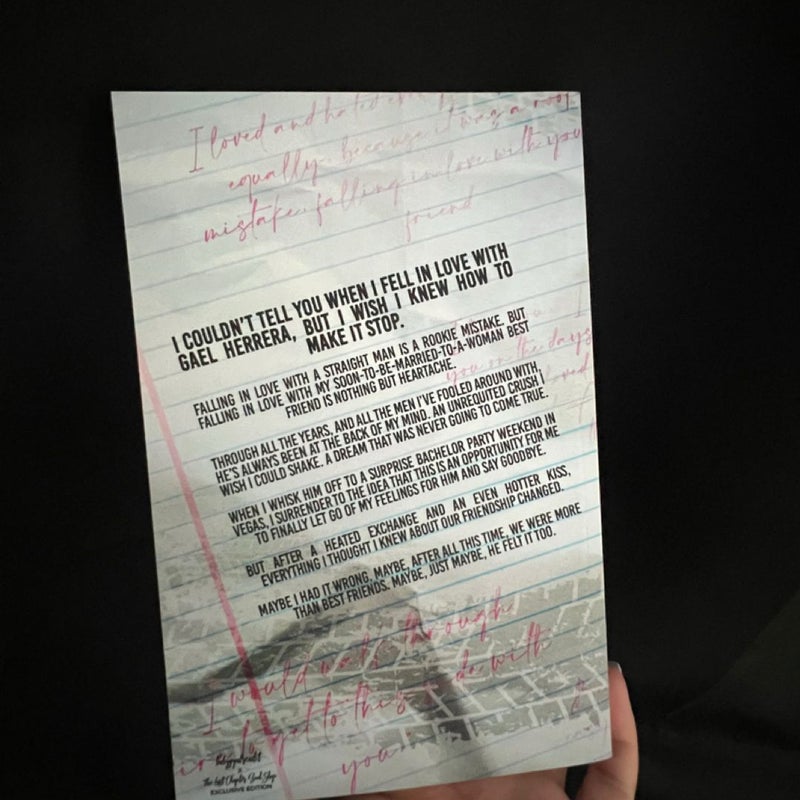 I loved and hated
equally, because it was a
mistake, falling in love with you
friend
I COULDN'T TELL YOU WHEN I FELL IN LOVE WITH
GAEL HERRERA, BUT I WISH I KNEW HOW TO
MAKE IT STOP.
I
you on the days
loved
FALLING IN LOVE WITH A STRAIGHT MAN IS A ROOKIE MISTAKE. BUT
FALLING IN LOVE WITH MY SOON-TO-BE-MARRIED-TO-A-WOMAN BEST
FRIEND IS NOTHING BUT HEARTACHE.
THROUGH ALL THE YEARS, AND ALL THE MEN I'VE FOOLED AROUND WITH,
HE'S ALWAYS BEEN AT THE BACK OF MY MIND. AN UNREQUITED CRUSH I
WISH I COULD SHAKE. A DREAM THAT WAS NEVER GOING TO COME TRUE.
WHEN I WHISK HIM OFF TO A SURPRISE BACHELOR PARTY WEEKEND IN
VEGAS, I SURRENDER TO THE IDEA THAT THIS IS AN OPPORTUNITY FOR ME
TO FINALLY LET GO OF MY FEELINGS FOR HIM AND SAY GOODBYE.
BUT AFTER A HEATED EXCHANGE AND AN EVEN HOTTER KISS,
EVERYTHING I THOUGHT I KNEW ABOUT OUR FRIENDSHIP CHANGED.
MAYBE I HAD IT WRONG. MAYBE, AFTER ALL THIS TIME, WE WERE MORE
THAN BEST FRIENDS. MAYBE, JUST MAYBE, HE FELT IT TOO.
I would walk through
to get to this with
you
The Last Chapter Book Shop
EXCLUSIVE EDITION